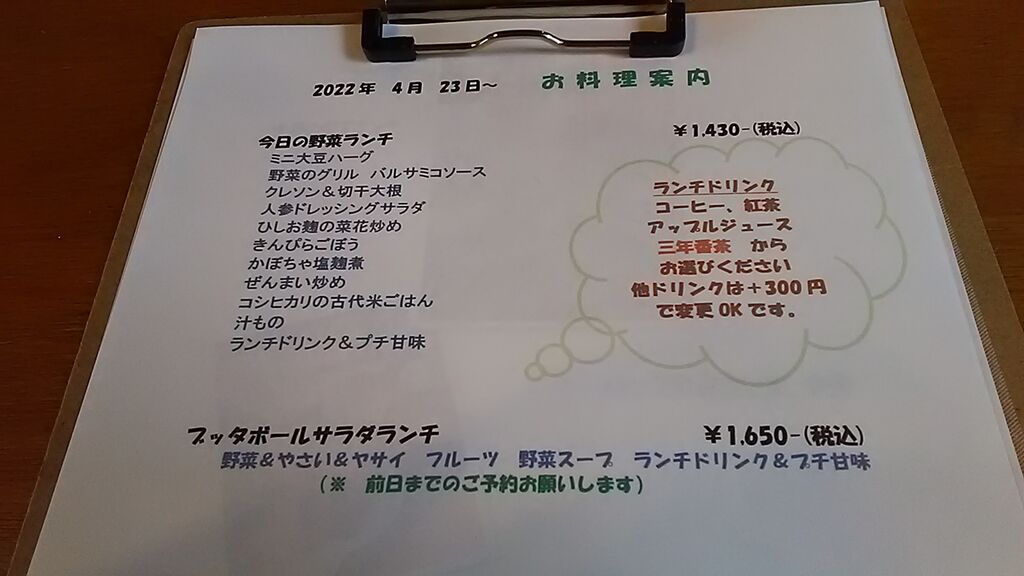 2022年 4月 23日～ お料理案内
今日の野菜ランチ ￥1,430-(税込)
ミニ大豆ハーグ
野菜のグリル バルサミコソース
クレソン＆切干大根
人参ドレッシングサラダ
ひしお麹の菜花炒め
きんぴらごぼう
かぼちゃ塩麹煮
ぜんまい炒め
コシヒカリの古代米ごはん
汁もの
ランチドリンク＆プチ甘味
ランチドリンク
コーヒー、紅茶
アップルジュース
三年番茶 から
お選びください
他ドリンクは＋300円
で変更OKです。
ブッタボールサラダランチ ￥1,650-(税込)
野菜＆やさい＆ヤサイ フルーツ 野菜スープ ランチドリンク＆プチ甘味
（※ 前日までのご予約お願いします）